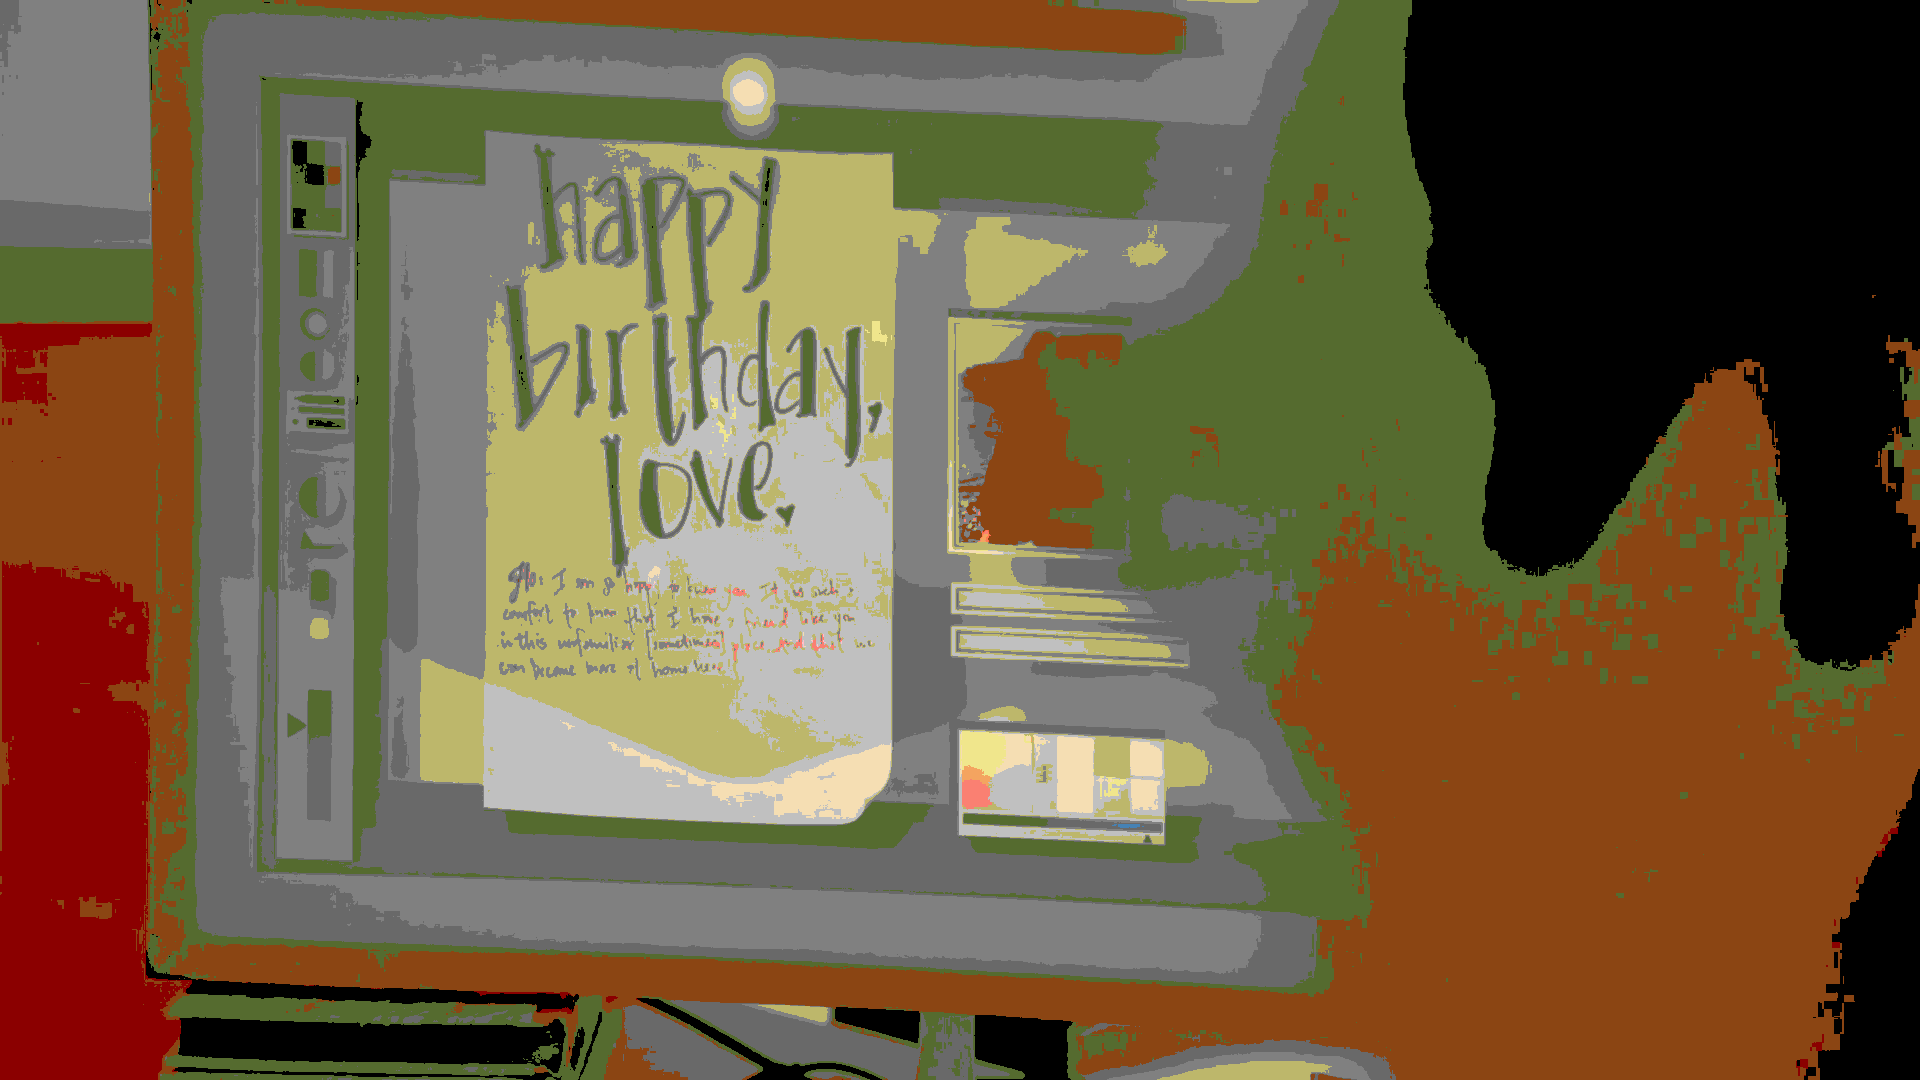 happy
birthday,
love.
I am so happy to know you. It is such a
comfort to know that I have a friend like you
in this unfamiliar [sometimes] place. And that we
can become more at home here.